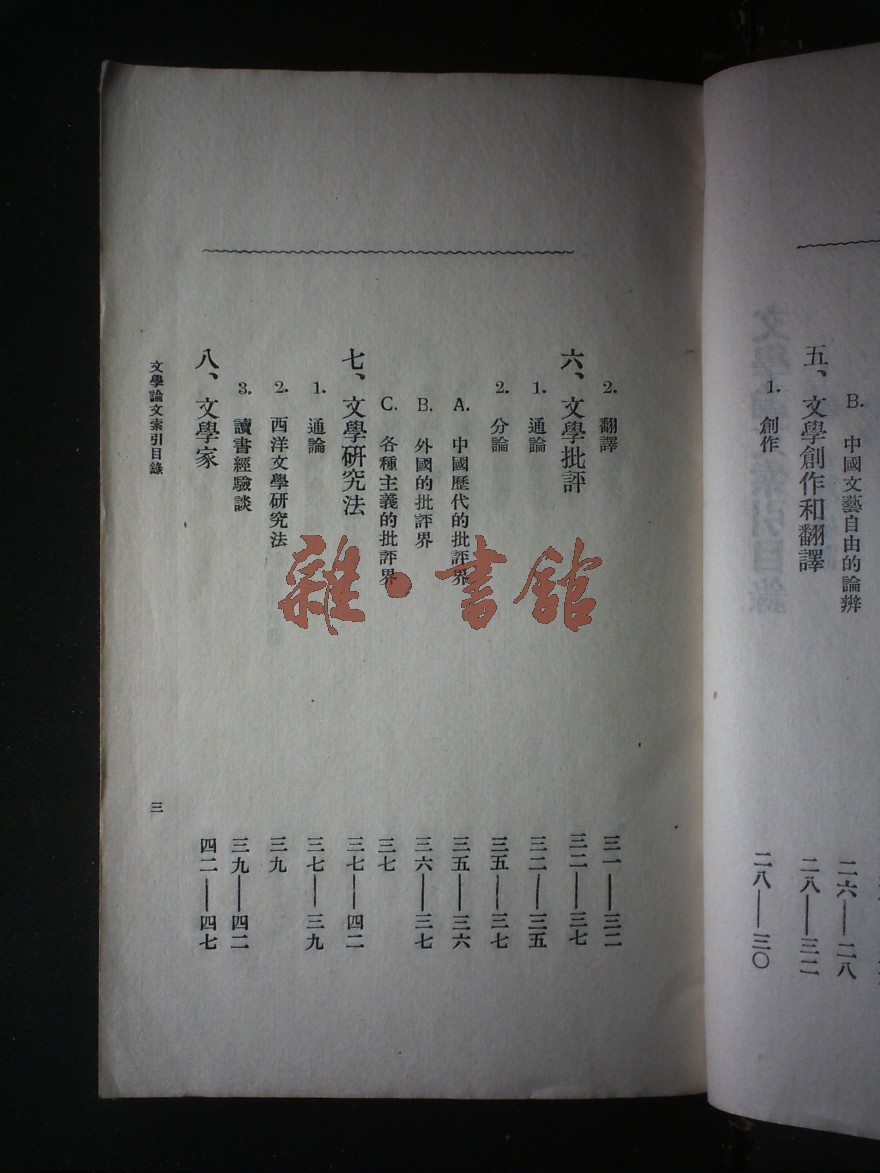 B. 中國文藝自由的論辨 二六——二八
五、文學創作和翻譯 二八——三二
1. 創作 二八——三〇
2. 翻譯 三一——三二
六、文學批評 三二——三七
1. 通論 三二——三五
2. 分論 三五——三七
A. 中國歷代的批評界 三五——三六
B. 外國的批評界 三六——三七
C. 各種主義的批評界 三七
七、文學研究法 三七——四二
1. 通論 三七——三九
2. 西洋文學研究法 三九
3. 讀書經驗談 三九——四二
八、文學家 四二——四七
文學論文索引目錄 三
雜·書館